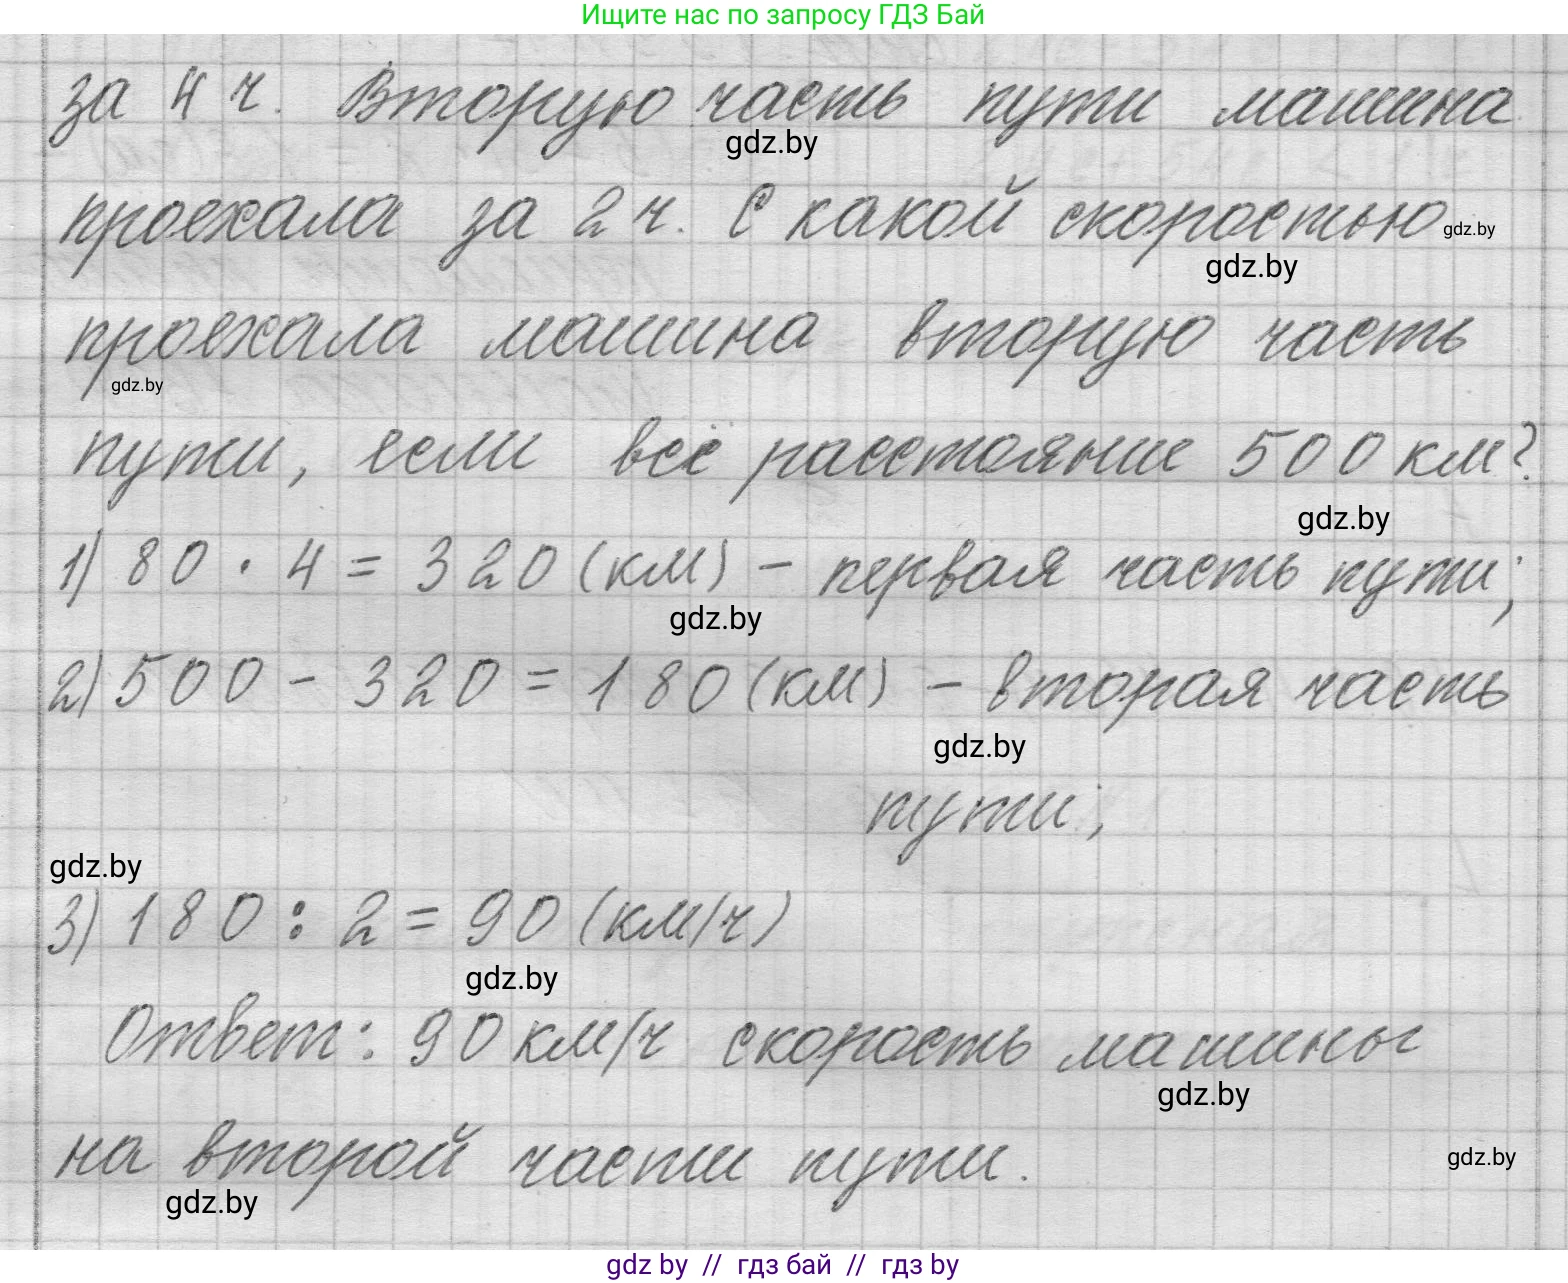 Ищите нас по запросу ГДЗ Бай
за 4 ч. Вторую часть пути машина
gdz.by
проехала за 2 ч. С какой скоростью
gdz.by
gdz.by
проехала машина вторую часть
gdz.by
пути, если всё расстояние 500 км?
gdz.by
1) 80 · 4 = 320 (км) – первая часть пути;
gdz.by
2) 500 – 320 = 180 (км) – вторая часть
gdz.by
пути;
gdz.by
3) 180 : 2 = 90 (км/ч)
gdz.by
Ответ: 90 км/ч скорость машины
gdz.by
на второй части пути.
gdz.by
gdz.by
gdz by // гдз бай // гдз by